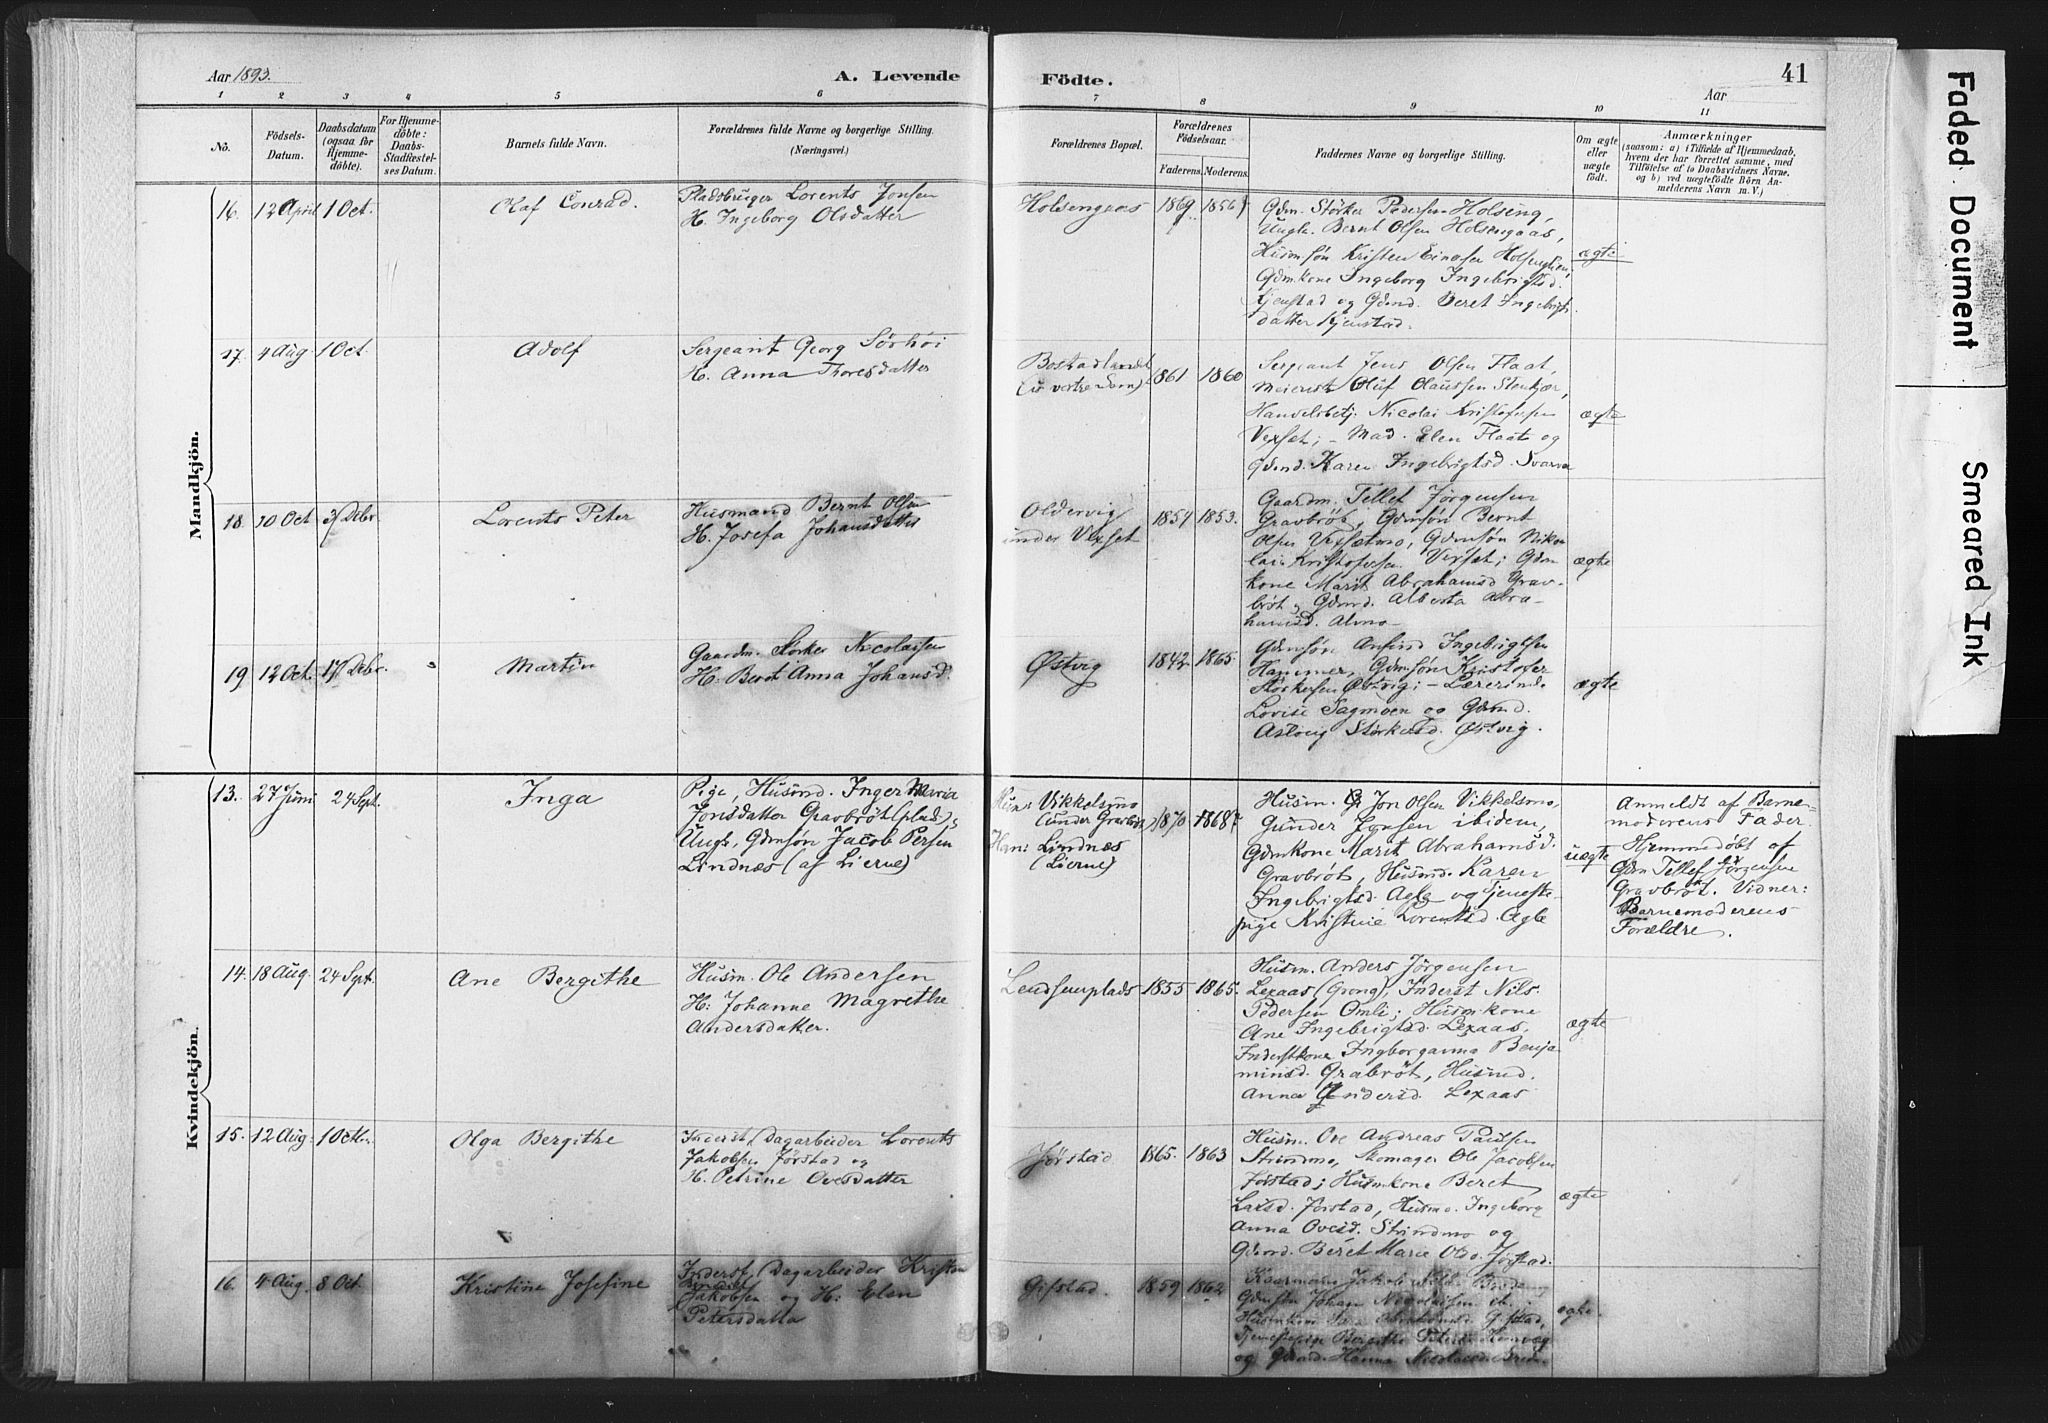 Aar 1893.
A. Levende
Födte.
Aar
41
1 2 3 4 5 6 7 8 9 10 11
No.
Födsels-
Datum.
Daabsdatum
(ogsaa for
Hjemme-
döbte).
For Hjemme-
döbte:
Daabs-
Stadfæstel-
ses Datum.
Barnets fulde Navn.
Forældrenes fulde Navne og borgerlige Stilling.
(Næringsvei.)
Forældrenes Bopæl.
Forældrenes
Födselsaar.
Faderens. Moderens.
Faddernes Navne og borgerlige Stilling.
Om ægte
eller
uægte
födt.
Anmærkninger
(saasom: a) i Tilfælde af Hjemmedaab,
hvem der har forrettet samme, med
Tilföielse af to Daabsvidners Navne,
og b) ved uægtefödte Börn An-
melderens Navn m. V.)
Mandkjön.
16. 12 April 1 Oct.
Olaf Conrad.
Pladsbruger Lorents Jonsen
H. Ingeborg Olsdatter
Holsengaas
1869. 1856
Gdm. Störker Pedersen Holseng,
Ungk. Bernt Olsen Holsengaas,
Husm søn Kristen Holsenglien,
Gdmkone Ingeborg Ingebrigtsd.
Kjenstad og Gdmd. Beret Ingebrigts
datter Kjenstad.
ægte
17. 4 Aug 1 Oct.
Adolf
Sergeant Georg Sörhöi
H. Anna Thoresdatter
Bostadlandet
(i vestre Sarn)
1861 1860
Sergeant Jens Olsen Flaat,
Meierist Oluf Olaussen Stenkjær,
Handelsbetj. Nicolai Kristofersen
Vexset; – Mad. Elen Flaat og
Gdmd. Karen Ingebrigtsd. Svarva
ægte
18. 10 Oct 3/ Debr
Lorents Peter
Husmand Bernt Olsen
H. Josefa Johansdatter
Oldervig
under Vexset
1851 1853.
Gaardm. Tellef Jörgensen
Gravbröt, Gdmsøn Bernt
Olsen Vexsetmo, Gdmsøn Niko
lai Kristofersen Vexset; Gdm
kone Marit Abrahamsd Grav-
bröt, Gdmd. Alberta Abra-
hamsd. Almo
ægte
19 12 Oct. 17 Debr.
Martin
Gaardm. Störker Nicolaisen
H: Beret Anna Johansd.
Østvig
1842 1865.
Gdmsøn Anfind Ingebrigtsen
Hammer, Gdmsøn Kristofer
Störkersen Østvig; – Lærerinde
Lovise Sagmoen og Gdmd.
Aslaug Störkersd. Østvig.
ægte
Kvindekjön.
13. 27 Juni 24 Sept.
Inga
Pige, Husmd. Inger Maria
Jonsdatter Gravbröt(plads),
Ungk., Gdmsøn Jacob Persen
Lindnæs (af Lierne)
Hun: Vikkelsmo
(under Gravbröt)
Han: Lindnæs
(Lierne)
1870 1868?
Husm. Jon Olsen Vikkelsmo,
Gunder Jonsen ibidem,
Gdmkone Marit Abrahamsd.
Gravbröt, Husmd. Karen
Ingebrigtsd. Agle og Tjeneste-
pige Kristine Lorentsd. Agle
uægte
Anmeldt af Barne
moderens Fader.
Hjemmedöbt af
Gdm Tellef Jörgensen
Gravbröt. Vidner:
Barnemoderens
Forældre.
14. 18 Aug. 24 Sept.
Ane Bergithe
Husm. Ole Andersen
H: Johanne Magrethe
Andersdatter.
1855 1865.
Husm. Anders Jörgensen
Lexaas (Grong), Inderst Nils
Pedersen Omli; Husmkone
Ane Ingebrigtsd. Lexaas,
Inderstkone Ingborganna Benja
minsd. Grabröt, Husmd.
Anna Andersd. Lexaas
ægte
15. 12 Aug: 1 Octbr.
Olga Bergithe
Inderst, Dagarbeider Lorents
Jakobsen Jörstad og
H. Petrine Ovesdatter
Jörstad
1865. 1863
Husm. Ove Andreas Paulsen
Strindmo, Skomager Ole Jacobsen
Jörstad; Husmkone Beret
Larsd. Jörstad, Husmd. Ingeborg
Anna Ovesd. Strindmo og
Gdmd. Beret Marie Olsd. Jörstad.
ægte
16. 4 Aug. 8 Oct.
Kristine Josefine
Inderst, Dagarbeider Kristen
Jakobsen og H: Elen
Petersdatter
Gifstad.
1859 1862
Jakob
Gdmsøn Johan Nicolaisen
Husmkone Gifstad,
Tjenestepige Bergithe
og Gdmd. Hanna
ægte.
Faded Document
Smeared Ink